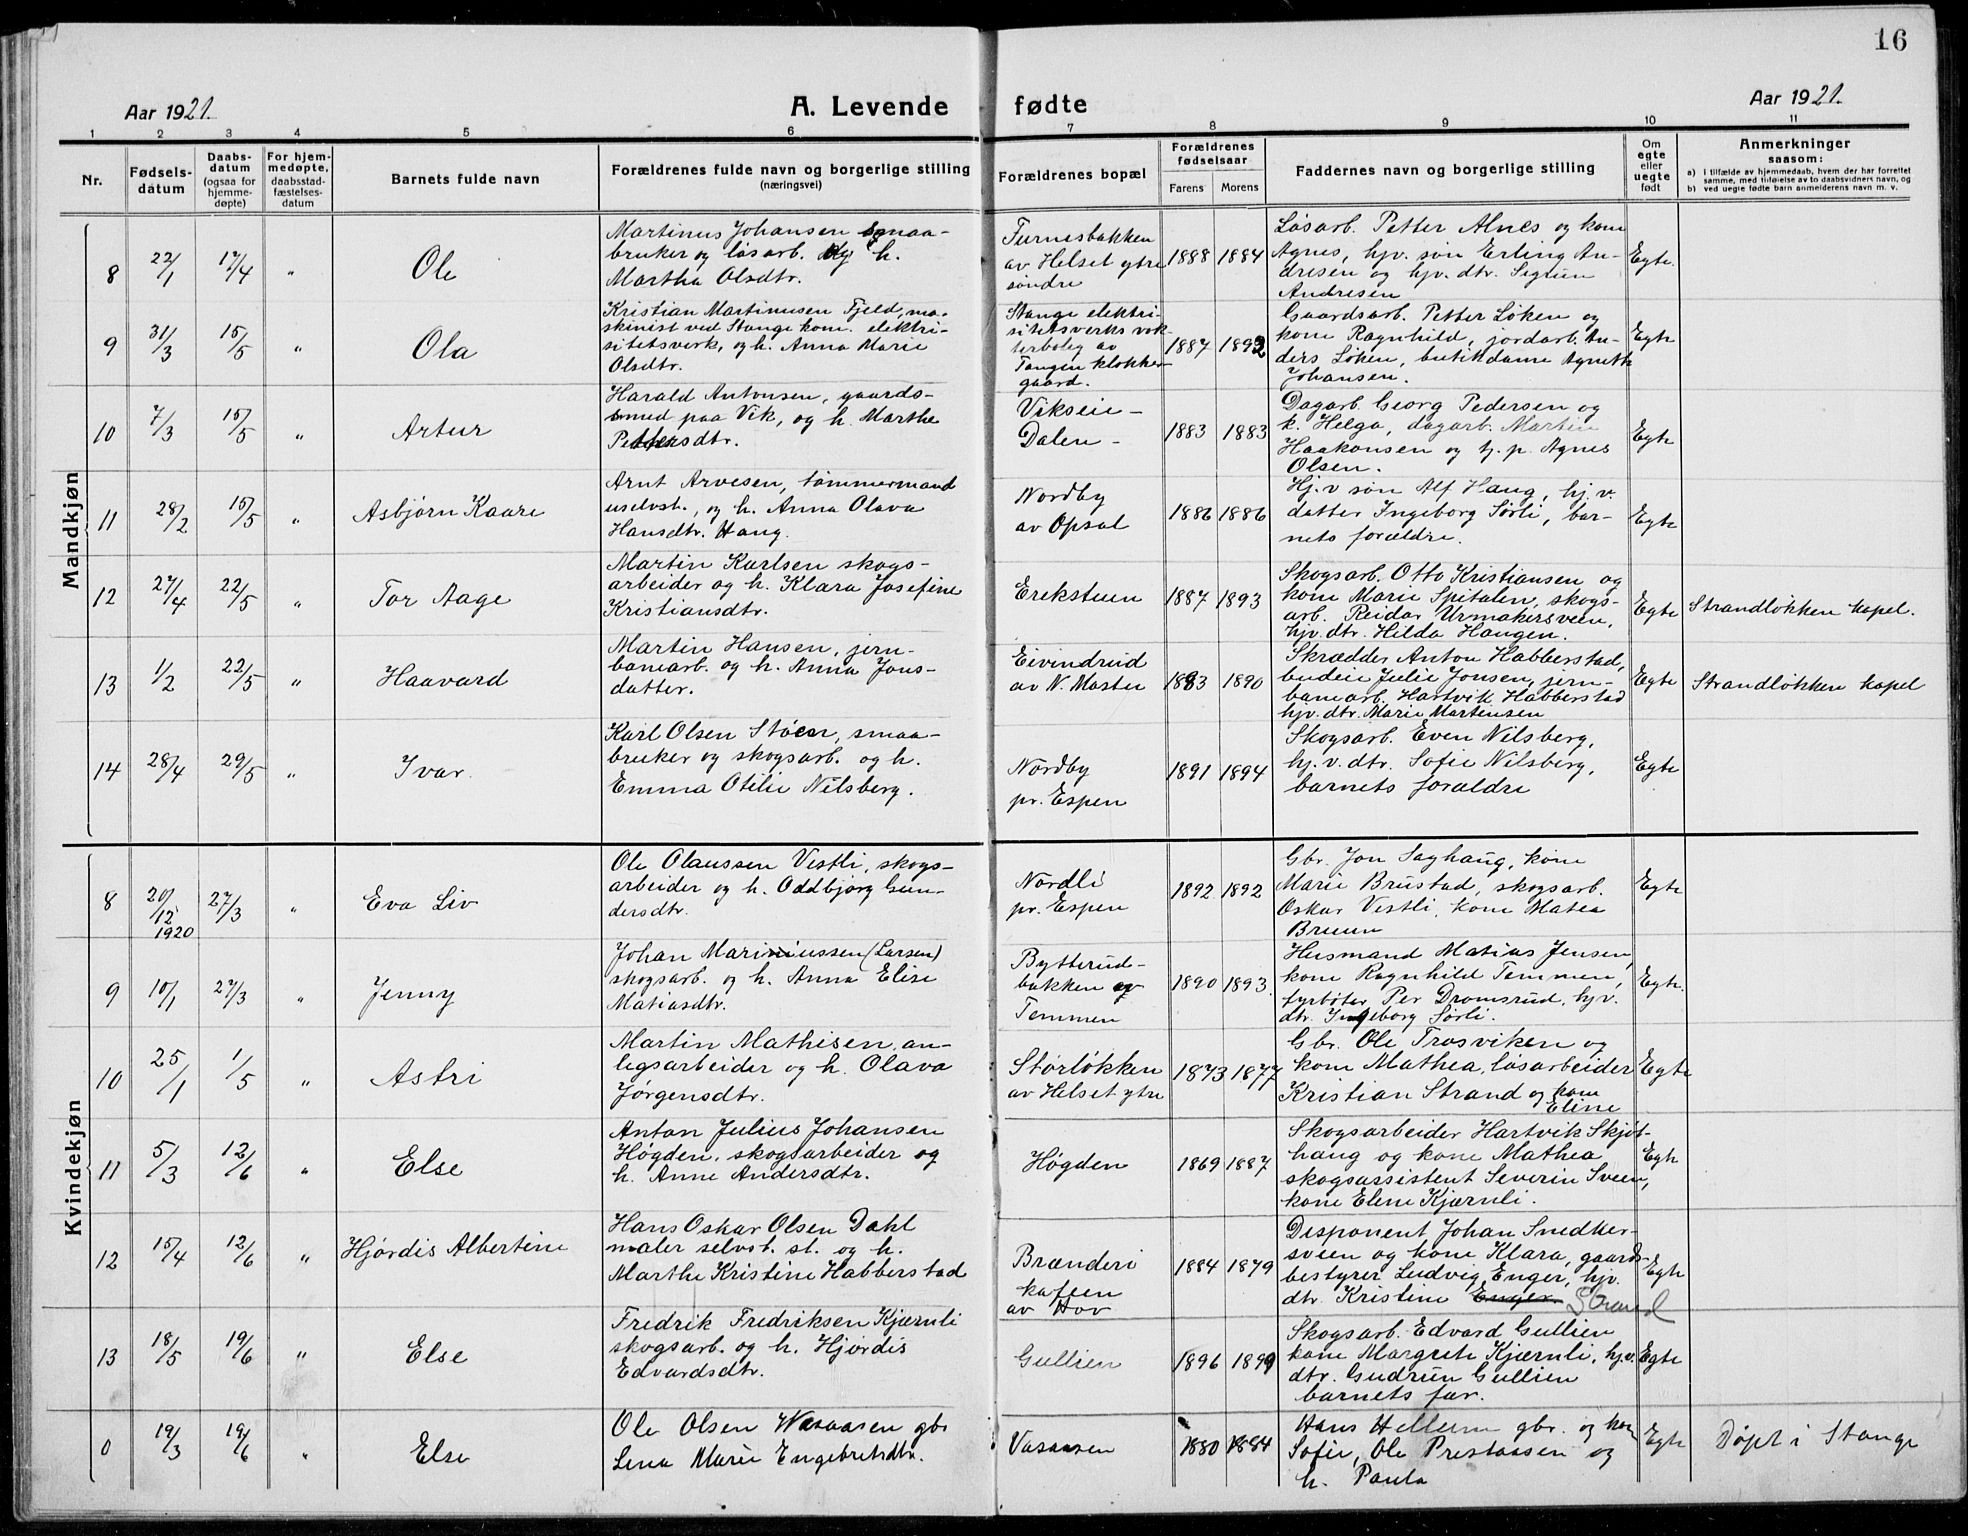 16
Aar 1921.
A. Levende fødte
Aar 1921.
1 2 3 4 5 6 7 8 9 10 11
Nr.
Fødsels-
datum
Daabs-
datum
(ogsaa for
hjemme-
døpte)
For hjem-
medøpte,
daabsstad-
fæstelses-
datum
Barnets fulde navn
Forældrenes fulde navn og borgerlige stilling
(næringsvei)
Forældrenes bopæl
Forældrenes
fødselsaar
Farens Morens
Faddernes navn og borgerlige stilling
Om
egte
eller
uegte
født
Anmerkninger
saasom:
a) i tilfælde av hjemmedaab, hvem der har forrettet
samme, med tilføielse av to daabsvidners navn, og
b) ved uegte fødte barn anmelderens navn m. v.
Mandkjøn
8 22/1 17/4 " Ole
Martinus Johansen smaa-
bruker og løsarb. og h.
Martha Olsdtr.
Furnesbakken
av Helset ytre
søndre
1888 1884
Løsarb. Petter Alnes og kone
Agnes, hjv. søn Erling An-
dresen og hjv. dtr. Sigrun
Andresen
Egte.
9 31/3 15/5 " Ola
Kristian Martinusen Fjeld, ma-
skinist ved Stange kom. elektri-
sitetsverk, og h. Anna Marie
Olsdtr.
Stange elektri-
sitetsverks vok-
terbolig av
Tangen klokker-
gaard.
1887 1892
Gaardsarb. Petter Løken og
kone Ragnhild, jordarb. An-
ders Løken, butikdame Agneth
Johansen.
Egte
10 7/3 15/5 " Artur
Harald Antonsen, gaards-
smed paa Vik, og h. Marthe
Pettersdtr.
Vikseie-
Dalen-
1883 1883
Dagarb. Georg Pedersen og
k. Helga, dagarb. Martin
Haakonsen og tj. p. Agnes
Olsen.
Egte
11 28/2 15/5 " Asbjørn Kaare
Arnt Arvesen, tømmermand
uselvst., og h. Anna Olava
Hansdtr. Haug.
Nordby
av Opsal
1886 1886
Hj.v søn Alf Haug, hj.v.
datter Ingeborg Sørli, bar-
nets forældre.
Egte
12 27/4 22/5 " Tor Aage
Martin Karlsen skogs-
arbeider og h. Klara Josefine
Kristiansdtr.
Erekstuen
1887 1893
Skogsarb. Otto Kristiansen og
kone Marie Spitalen, skogs-
arb. Reidar Urmakersveen,
hjv. dtr. Hilda Haugen.
Egte
Strandløkken kapel.
13 1/2 22/5 " Haavard
Martin Hansen, jern-
banearb. og h. Anna Jons-
datter.
Eivindrud
av N. Mostu
1883 1890
Skrædder Anton Habberstad,
budeie Julie Jonsen, jern-
banearb. Hartvik Habberstad
hjv. dtr. Marie Martensen
Egte
Strandløkken kapel
14 28/4 29/5 " Ivar.
Karl Olsen Støen, smaa-
bruker og skogsarb. og h.
Emma Otilie Nilsberg.
Nordby
pr. Espen
1891 1894
Skogsarb. Even Nilsberg,
hj. v. dtr. Sofie Nilsberg,
barnets forældre
Egte
Kvindekjøn
8 20/12 1920 27/3 " Eva Liv
Ole Olaussen Vestli, skogs-
arbeider og h. Oddbjørg Gun-
dersdtr.
Nordli
pr. Espen
1892 1892
Gbr. Jon Saghaug, kone
Marie Brustad, skogsarb.
Oskar Vestli, kone Matea
Bruun
Egte
9 10/1 27/3 " Jenny
Johan Marinussen (Larsen)
skogsarb. og h. Anna Elise
Matiasdtr.
Bytterud-
bakken
Temmen
1890 1893.
Husmand Matias Jensen,
kone Ragnhild Temmen,
fyrbøter Per Dromsrud, hjv.
dtr. Ingeborg Sørli.
Egte.
10 25/1 1/5 " Astri
Martin Mathisen, an-
legsarbeider og h. Olava
Jørgensdtr.
Størløkken
av Helset ytre
1873 1877
Gbr. Ole Trosviken og
kone Mathea, løsarbeider
Kristian Strand og kone
Eline
Egte
11 5/3 12/6 " Else
Anton Julius Johansen
Høgden, skogsarbeider og
h. Anne Andersdtr.
Høgden
1869 1887
Skogsarbeider Hartvik Skjøt-
haug og kone Mathea
skogsassistent Severin Sveen,
kone Elene Kjærnli.
Egte
12 15/4 12/6 " Hjørdis Albertine
Hans Oskar Olsen Dahl
maler selvst. st. og h.
Marthe Kristine Habberstad
Brænderi
kafeen
av Hov
1884 1879
Disponent Johan Snedker-
sveen og kone Klara, gaards-
bestyrer Ludvig Enger, hjv.
dtr. Kristine Enger. Strand
Egte
13 18/5 19/6 " Else
Fredrik Fredriksen Kjærnli
skogsarb. og h. Hjørdis
Edvardsdtr.
Gullien
1896 1899
Skogsarb. Edvard Gullien
kone Margrete Kjærnli, hj.v.
dtr. Gudrun Gullien
barnets far.
Egte
0 19/3 19/6 " Else
Ole Olsen Vasaasen gbr
Lena Marie Engebretsdtr.
Vasaasen
1880 1884
Hans Hellum gbr. og kone
Sofie, Ole Prestaasen og
h. Paula
Egte
Døpt i Stange